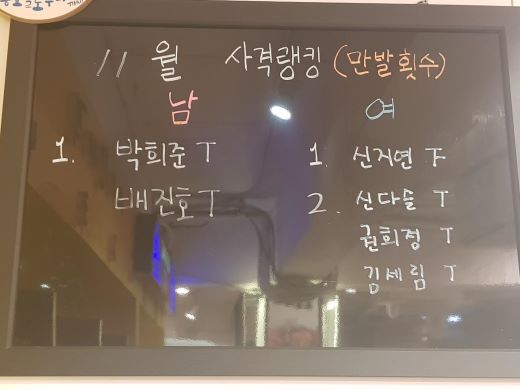 11월 사격랭킹 (만발횟수)
남 여
1. 박희준 T 1. 신지연 F
배진호 T 2. 신다슬 T
권희정 T
김세림 T